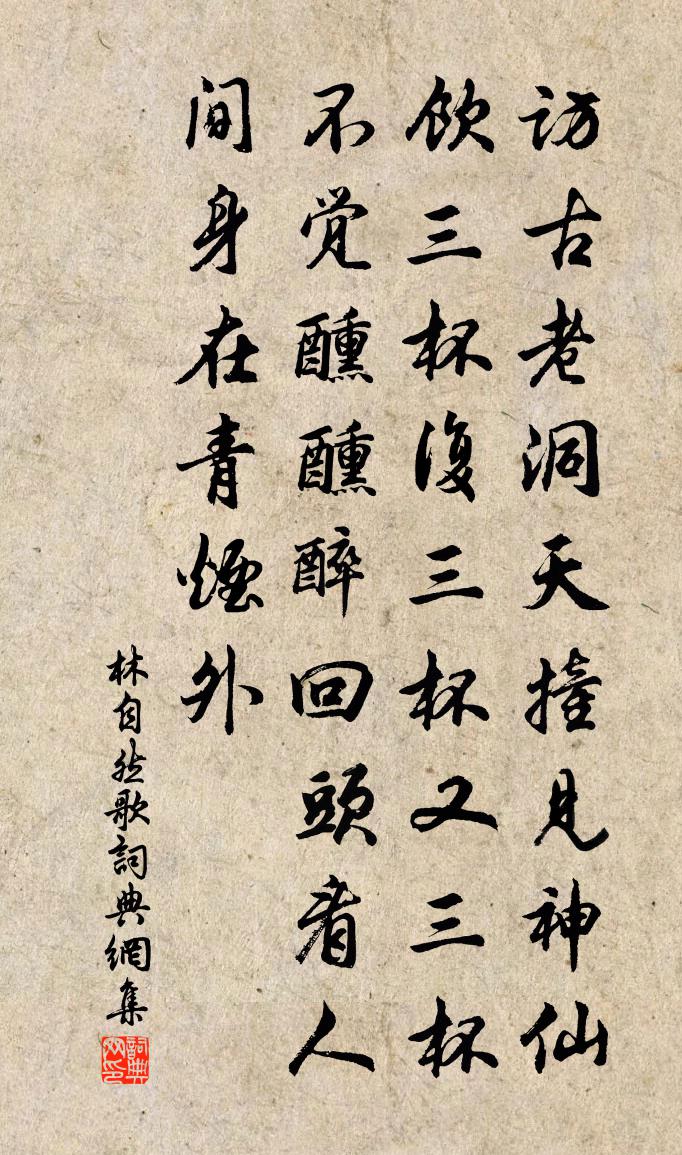 訪古老洞天撞見神仙
飲三杯復三杯又三杯
不覺醺醺醉回頭看人
间身在青煙外
林自然歌詞典網集
詞典網印